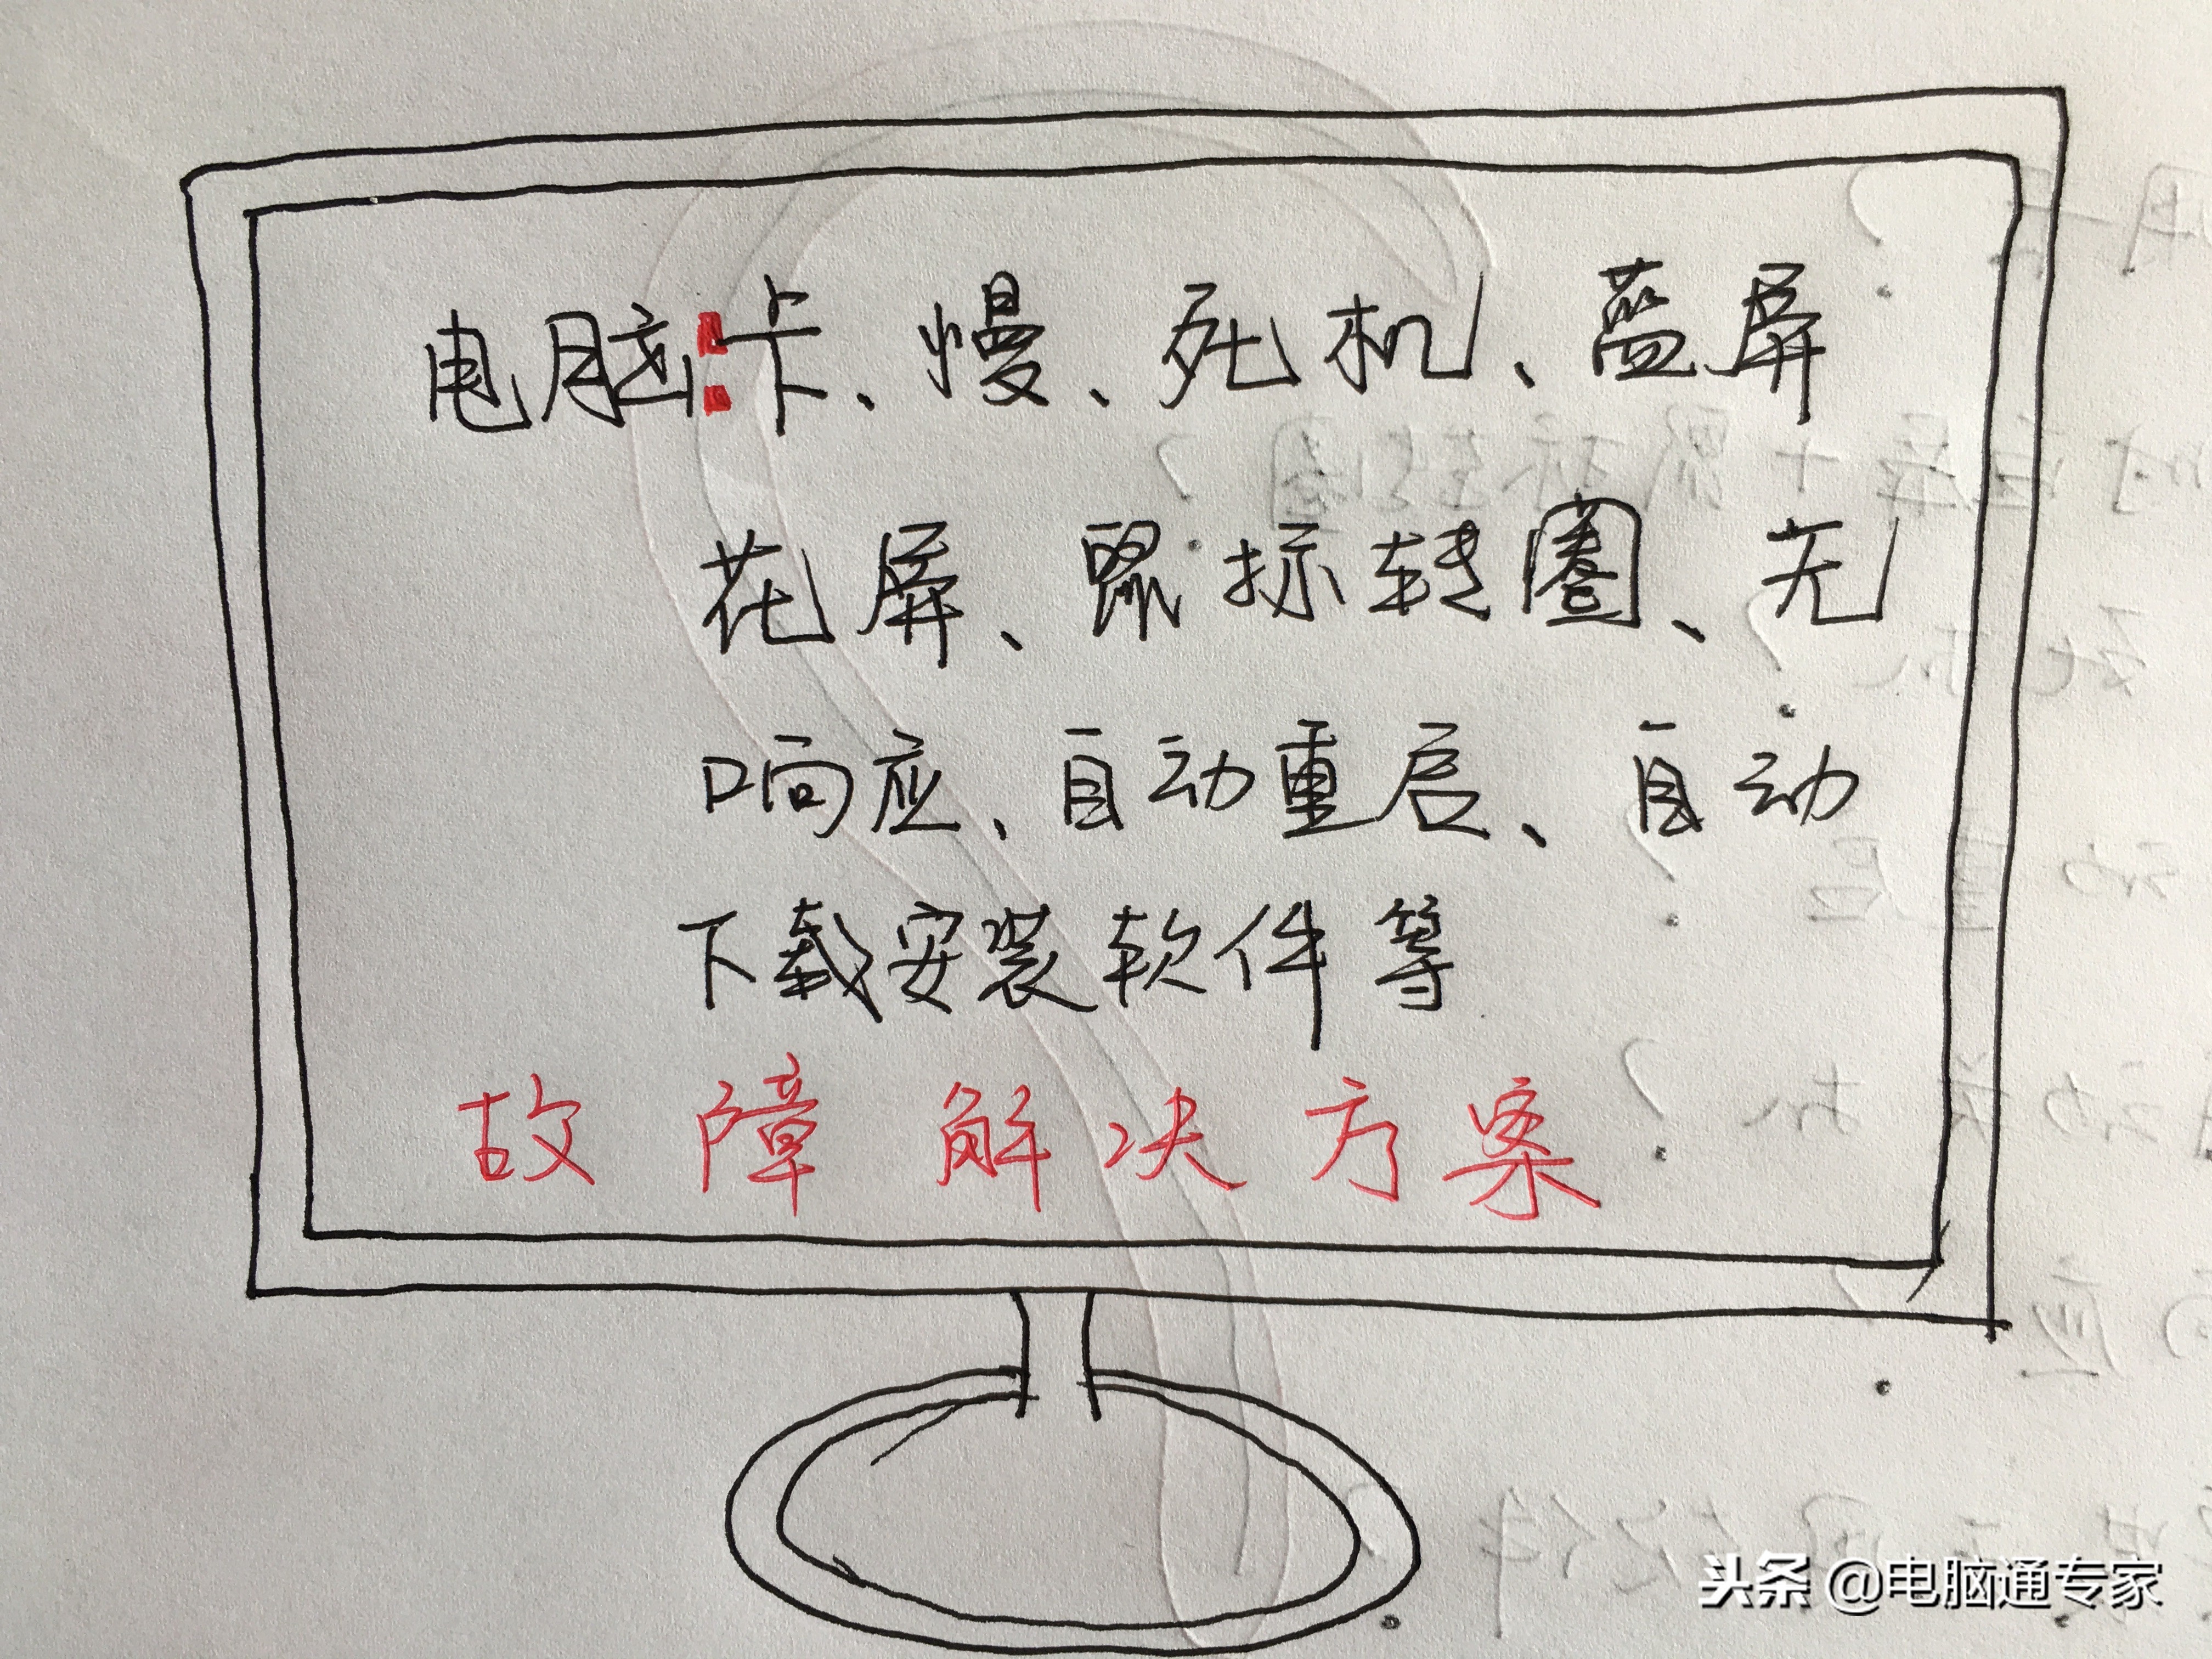 电脑:卡、慢、死机、蓝屏
花屏、鼠标转圈、无
响应、自动重启、自动
下载安装软件等
故障解决方案
头条 @电脑通专家